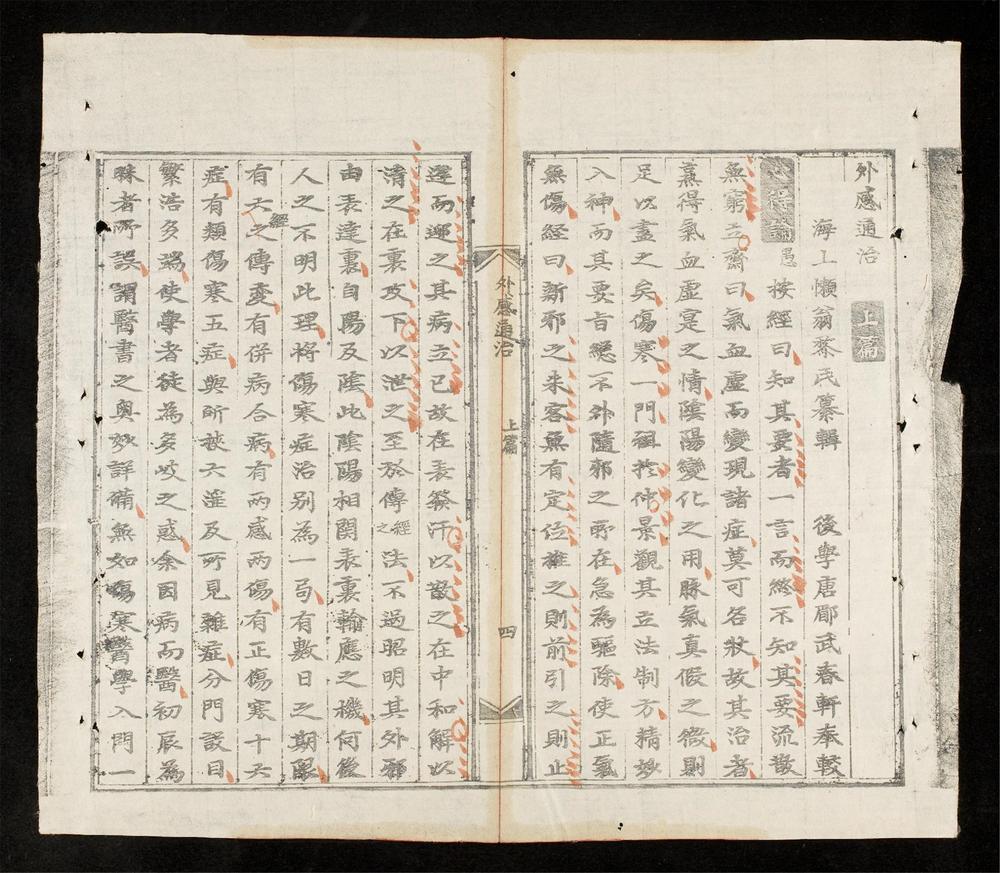 外感通治 上篇
海上懶翁黎氏纂輯 後學唐郿武春軒奉較
論 愚按經曰知其要者一言而終不知其要流散
無窮立齋曰氣血虛而變現諸症莫可名狀故其治者
蒸得氣血虛寔之情陰陽變化之用脉氣真假之微則
足以盡之矣傷寒一門祖於仲景觀其立法制方精妙
入神而其要旨總不外隨邪之所在急為驅除使正氣
無傷経曰新邪之來客無有定位推之則前引之則止
逆而迎之其病立已故在表發汗以散之在中和解以
清之在裏攻下以泄之至於傳經之法不過昭明其外邪
由表達裏自陽及陰此陰陽相関表裏輸應之機何後
人之不明此理將傷寒症治別為一局有數日之期限
有六經之傳变有併病合病有兩感兩傷有正傷寒十六
症有類傷寒五症與所被六滛及所見雜症分門設目
繁浩多端使學者徒為多岐之惑余因病而醫初辰為
昧者所誤謂醫書之奥妙詳備無如傷寒醫學入門一
外感通治 上篇 四